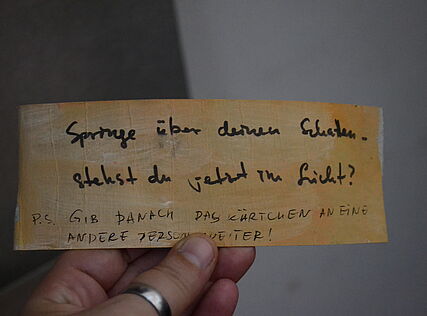 Springe über deinen Schatten.
stehst du jetzt im Licht?
P.S. GIB DANACH DAS KÄRTCHEN AN EINE
ANDERE PERSON WEITER!